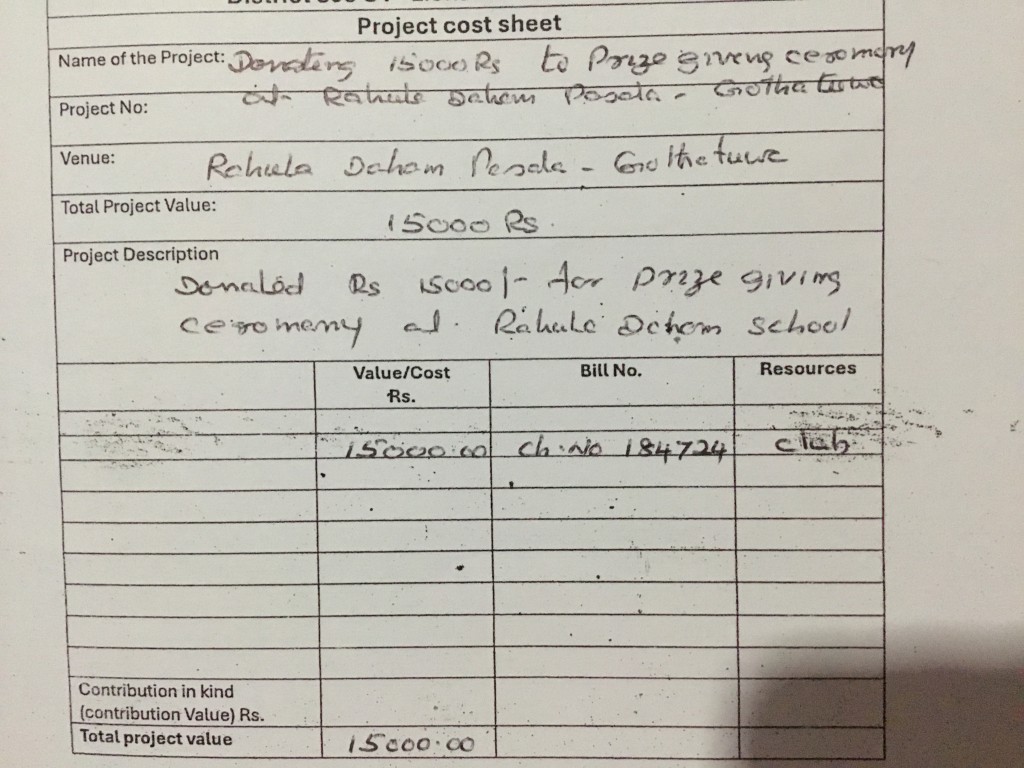 Project cost sheet
Name of the Project: Donating 15000 Rs to Prize giving ceromony
at Rahula Daham Pasala - Gothatuwa
Project No:
Venue: Rahula Daham Pasala - Gothatuwa
Total Project Value: 15000 Rs.
Project Description
Donated Rs 15000/- for prize giving
ceromony at. Rahula Daham School
Value/Cost Rs. Bill No. Resources
15000.00 Ch: No 184724 club
Contribution in kind
(contribution Value) Rs.
Total project value 15000.00